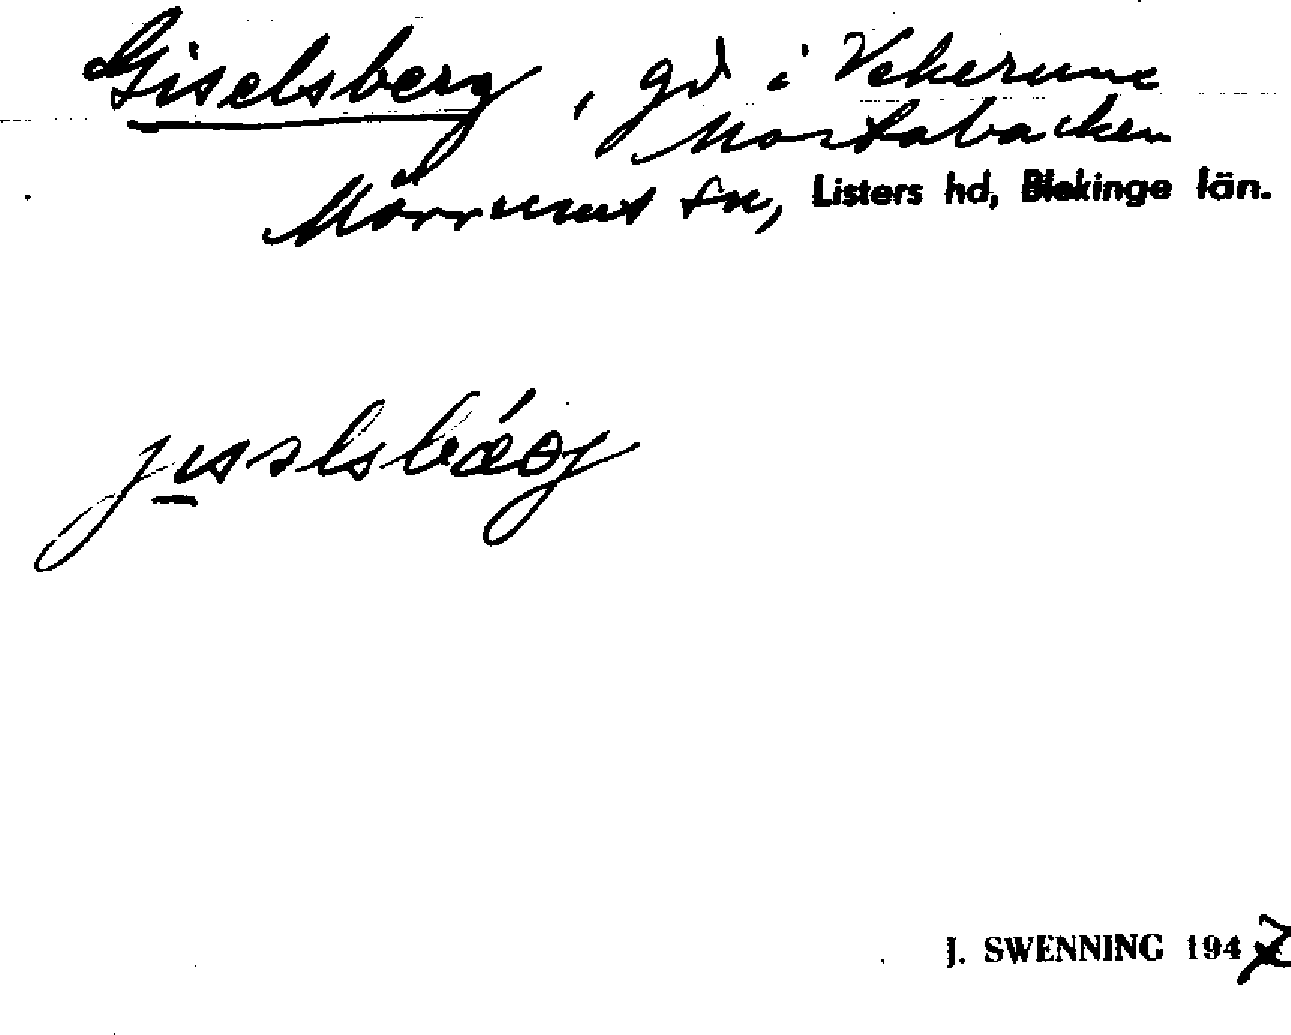 Giselsberg, gd i Vekerum
Norrabacken
Mörrums sn, Listers hd, Blekinge län.
J. SWENNING 1947